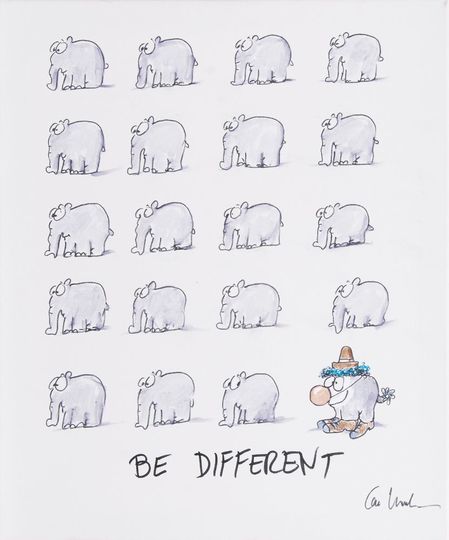 BE DIFFERENT